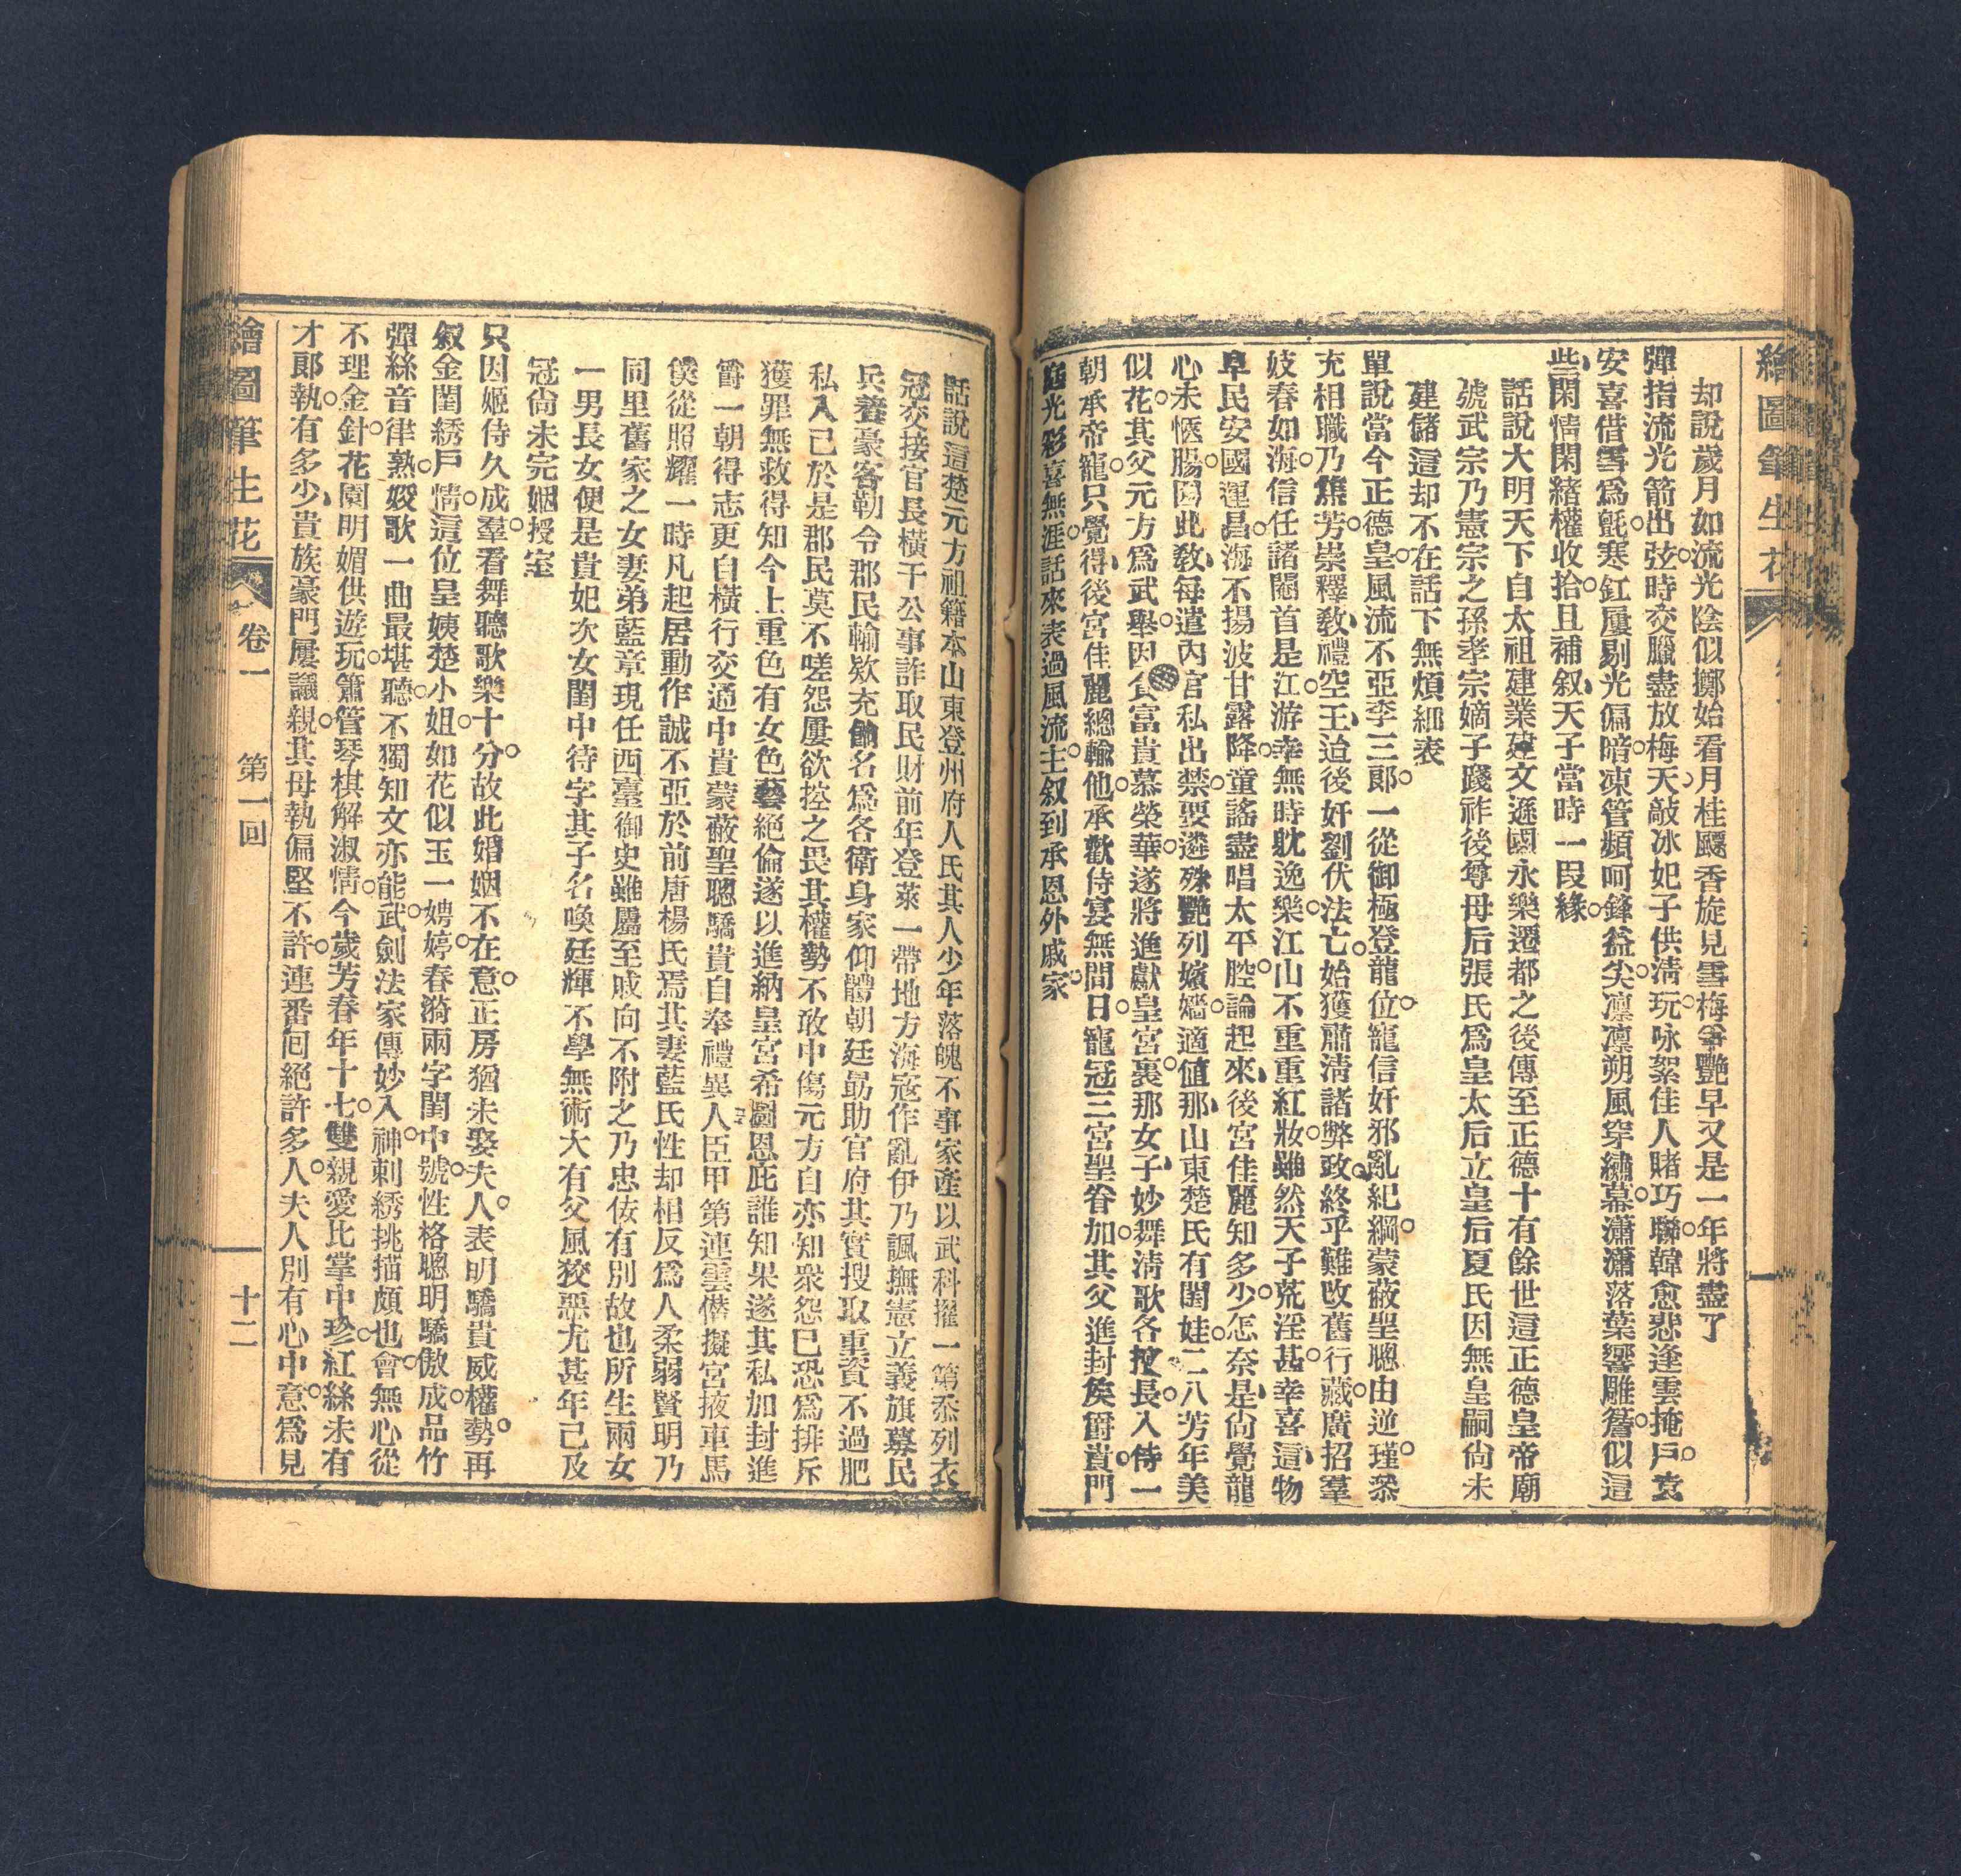 繪圖筆生花
却說歲月如流光陰似擲始看月桂飄香旋見雪梅爭艷早又是一年將盡了
彈指流光箭出弦時交臘盡放梅天敲冰妃子供淸玩咏絮佳人賭巧聯韓愈悲逢雲掩戶袁
安喜借雪爲氈寒釭屢剔光偏暗凍管頻呵鋒益尖凛凛朔風穿繡幕瀟瀟落葉響雕簷似這
些閑情閑緒權收拾且補叙天子當時一叚緣
話說大明天下自太祖建業建文遜國永樂遷都之後傳至正德十有餘世這正德皇帝廟
號武宗乃憲宗之孫孝宗嫡子踐祚後尊母后張氏爲皇太后立皇后夏氏因無皇嗣尙未
建儲這却不在話下無煩細表
單說當今正德皇風流不亞李三郎一從御極登龍位寵信奸邪亂紀綱蒙蔽聖聰由逆瑾叅
充相職乃焦芳崇釋敎禮空王迨後奸劉伏法亡始獲肅淸諸弊政終乎難改舊行藏廣招羣
妓春如海信任諸閹首是江游幸無時躭逸樂江山不重重紅妝雖然天子荒淫甚幸喜這物
阜民安國運昌海不揚波甘露降童謠盡唱太平腔論起來後宮佳麗知多少怎奈是尙覺龍
心未愜腸因此敎每遣內官私出禁要遴殊艷列嬪嬙適値那山東楚氏有閨娃二八芳年美
似花其父元方爲武舉因貪富貴慕榮華遂將進獻皇宮裏那女子妙舞淸歌各擅長入侍一
朝承帝寵只覺得後宮佳麗總輸他承歡侍宴無間日寵冠三宮聖眷加其父進封矦爵貴門
庭光彩喜無涯話來表過風流主叙到承恩外戚家
話說這楚元方祖籍本山東登州府人氏其人少年落魄不事家產以武科擢一第忝列衣
冠交接官長橫干公事詐取民財前年登萊一帶地方海寇作亂伊乃諷撫憲立義旗募民
兵養豪客勒令郡民輸欵充餉名爲各衛身家仰體朝廷勗助官府其實搜取重資不過肥
私入己於是郡民莫不嗟怨屢欲控之畏其權勢不敢中傷元方自亦知衆怨已恐爲排斥
獲罪無救得知今上重色有女色藝絕倫遂以進納皇宮希圖恩庇誰知果遂其私加封進
爵一朝得志更自橫行交通中貴蒙蔽聖聰驕貴自奉禮異人臣甲第連雲僭擬宮掖車馬
僕從照耀一時凡起居動作誠不亞於前唐楊氏焉其妻藍氏性却相反爲人柔弱賢明乃
同里舊家之女妻弟藍章現任西臺御史雖屬至戚向不附之乃忠佞有別故也所生兩女
一男長女便是貴妃次女閨中待字其子名喚廷輝不學無術大有父風狡惡尤甚年已及
冠尙未完姻授室
只因姬侍久成羣看舞聽歌樂十分故此婚姻不在意正房猶未娶夫人表明驕貴威權勢再
叙金閨綉戶情這位皇姨楚小姐如花似玉一娉婷春漪兩字閨中號性格聰明驕傲成品竹
彈絲音律熟姣歌一曲最堪聽不獨知文亦能武劍法家傳妙入神刺綉挑描頗也會無心從
不理金針花園明媚供遊玩簫管琴棋解淑情今歲芳春年十七雙親愛比掌中珍紅絲未有
才郎執有多少貴族豪門屢議親其母執偏堅不許連番囘絕許多人夫人別有心中意爲見
繪圖筆生花 卷一 第一回 十二